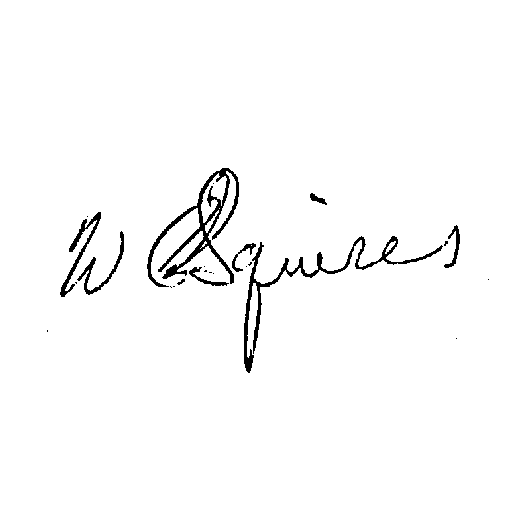 W C Squires